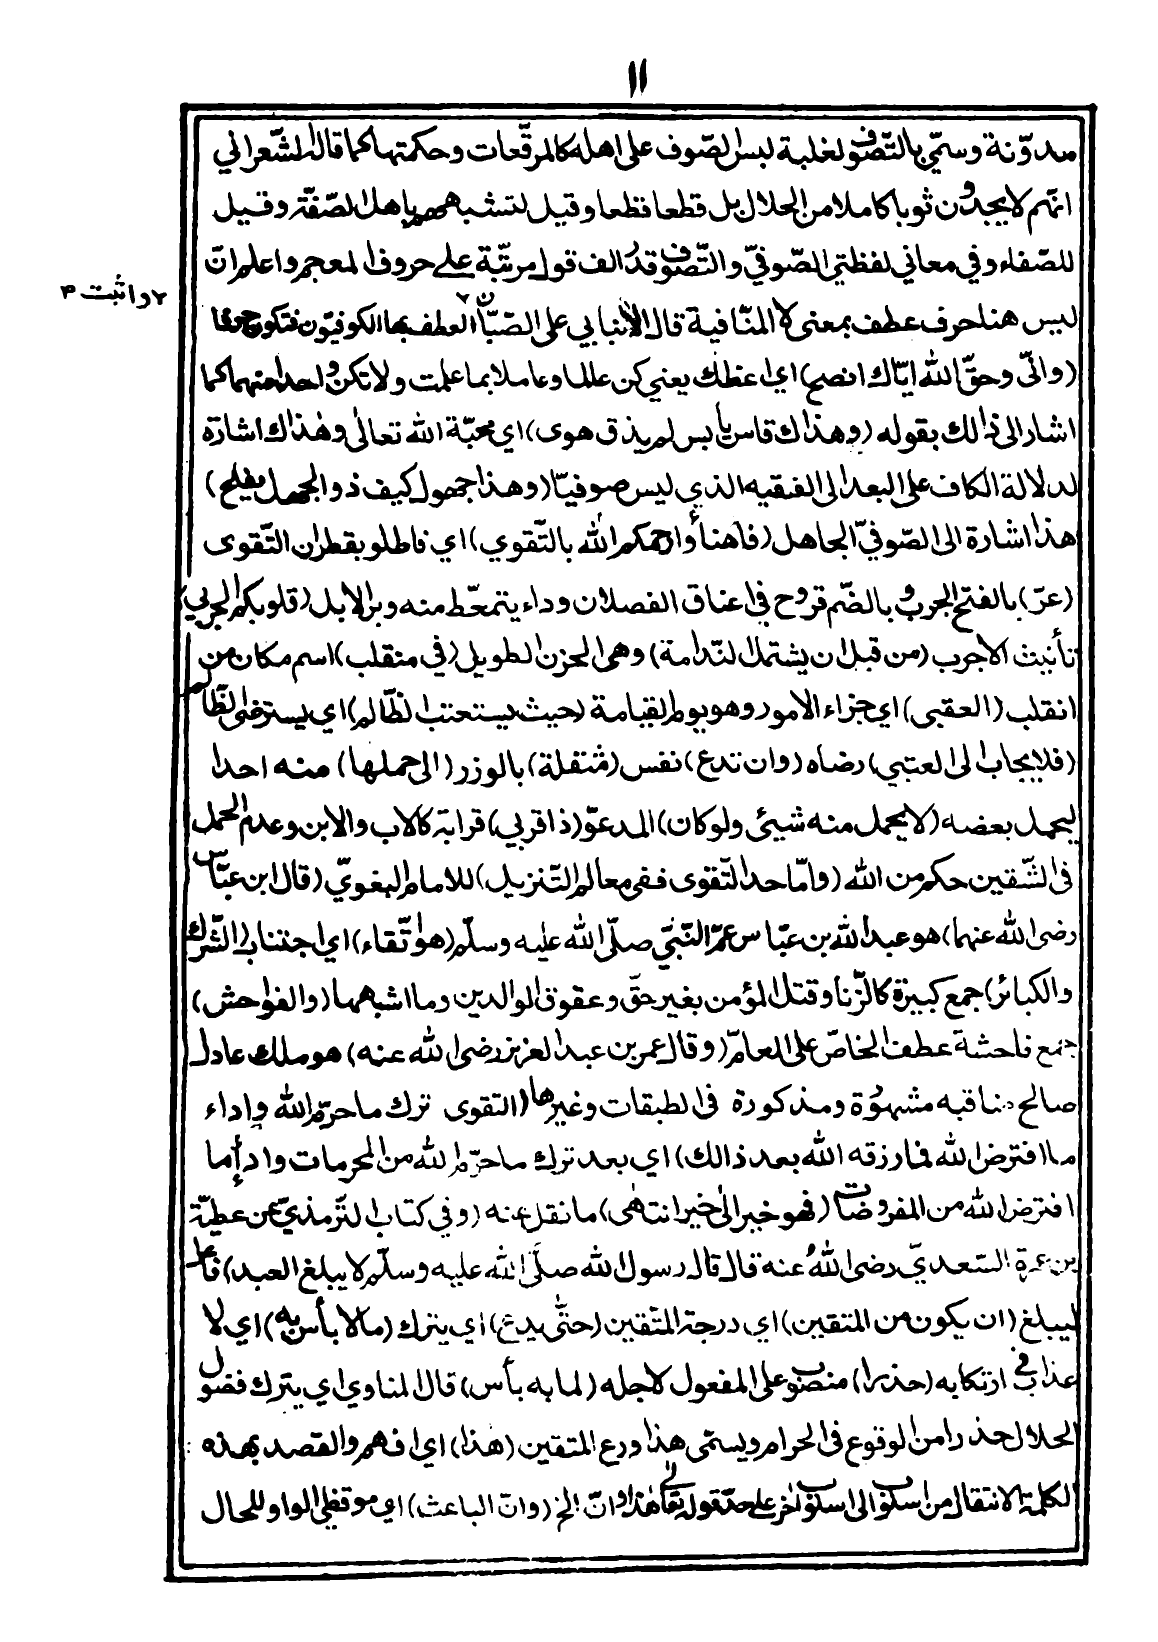 ١١
مدوّنة وسمّي بالتّصوّف لغلبة لبس الصّوف على اهله كالمرقّعات وحكمتها كما قال الشّعراني
انّهم لا يجدون ثوبا كاملا من الحلال بل قطعا قطعا وقيل لتشبههم باهل الصّفّة وقيل
للصّفاء وفي معاني لفظتي الصّوفيّ والتّصوّف قدر الف قول مرتّبة على حروف المعجم واعلم انّ
٧ واثبت م
ليس هنا حرف عطف بمعنى لا النّافية قال الأنبابي على الصّبّان العطف بها الكوفيّون فتكون حرفا
(وانّي وحقّ الله ايّاك انصح) اي اعظك يعني كن عالما وعاملا بما علمت ولا تكن واحدا منهما كما
اشار الى ذالك بقوله (وهذاك قاس يابس لم يذق هوى) اي محبّة الله تعالى وهذاك اشارة
لدلالة الكاف على البعد الى الفقيه الذي ليس صوفيّا (وهذا جهول كيف ذو الجهل يفلح)
هذا اشارة الى الصّوفيّ الجاهل (فاهنأوا رحمكم الله بالتّقوي) اي فاطلو بقطران التّقوى
(عرّ) بالفتح الجرب وبالضّم قروح في اعناق الفصلان وداء يتمعّط منه وبر الابل (قلوبكم الجربي)
تأنيث الاجرب (من قبل ان يشتمل النّدامة) وهي الحزن الطويل (في منقلب) اسم مكان من
انقلب (العقبى) اي جزاء الامور وهو يوم القيامة (حيث يستعتب الظّالم) اي يسترضى الظّالم
(فلا يجاب الى العتبي) رضاه (وان تدع) نفس (مثقلة) بالوزر (الى حملها) منه احدا
ليحمل بعضه (لا يحمل منه شيئ ولو كان) المدعوّ (ذا قربي) قرابة كالاب والابن وعدم الحمل
في الشّقين حكم من الله (وامّا حد التّقوى ففي معالم التّنزيل) للامام البغويّ (قال ابن عبّاس
رضى الله عنهما) هو عبد الله بن عبّاس عمّ النّبيّ صلّى الله عليه وسلّم (هو اتّقاء) اي اجتناب (الشّرك
والكبائر) جمع كبيرة كالزّنا وقتل المؤمن بغير حقّ وعقوق الوالدين وما اشبهها (والفواحش)
جمع فاحشة عطف الخاصّ على العامّ (وقال عمر بن عبد العزيز رضى الله عنه) هو ملك عادل
صالح مناقبه مشهوُرة ومذكورة في الطبقات وغيرها (التقوى ترك ما حرّم الله واداء
ما افترض الله فما رزقه الله بعد ذالك) اي بعد ترك ما حرّم الله من المحرمات واد أما
افترض الله من المفروضات (فهو خير الى خير انتهى) ما نقل عنه (وفي كتاب التّرمذيّ عن عطيّة
بن عروة السّعديّ رضى اللهُ عنه قال قال رسول الله صلّى الله عليه وسلّم لا يبلغ العبد) فاعل
ليبلغ (ان يكون من المتقين) اي درجة المتّقين (حتّى يدع) اي يترك (ما لا بأس به) اي لا
عذاب في ارتكابه (حذرا) منصوب على المفعول لاجله (لما به بأس) قال المناوي اي يترك فضول
الحلال حذرا من الوقوع في الحرام ويسمّى هذا ورع المتقين (هذا) اي افهم والقصد بهذه
الكلمة الانتقال من اسلوب الى اسلوب اخر على حدّ قوله تعالى هذا وانّ الخ (وانّ الباعث) اي موقفظي الواو للحال